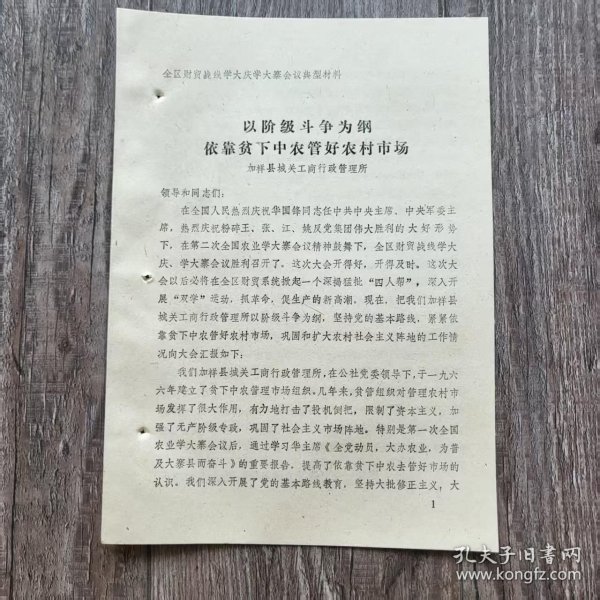 全区财贸战线学大庆学大寨会议典型材料
以阶级斗争为纲
依靠贫下中农管好农村市场
加祥县城关工商行政管理所
领导和同志们：
在全国人民热烈庆祝华国锋同志任中共中央主席、中央军委主
席，热烈庆祝粉碎王、张、江、姚反党集团伟大胜利的大好形势
下，在第二次全国农业学大寨会议精神鼓舞下，全区财贸战线学大
庆、学大寨会议胜利召开了。这次大会开得好，开得及时。这次大
会以后必将在全区财贸系统掀起一个深揭猛批“四人帮”，深入开
展“双学”运动，抓革命，促生产的新高潮。现在，把我们加祥县
城关工商行政管理所以阶级斗争为纲，坚持党的基本路线，紧紧依
靠贫下中农管好农村市场，巩固和扩大农村社会主义阵地的工作情
况向大会汇报如下：
我们加祥县城关工商行政管理所，在公社党委领导下，于一九六
六年建立了贫下中农管理市场组织。几年来，贫管组织对管理农村市
场发挥了很大作用，有力地打击了投机倒把，限制了资本主义，加
强了无产阶级专政，巩固了社会主义市场阵地。特别是第一次全国
农业学大寨会议后，通过学习华主席《全党动员，大办农业，为普
及大寨县而奋斗》的重要报告，提高了依靠贫下中农去管好市场的
认识。我们深入开展了党的基本路线教育，坚持大批修正主义，大
1
孔夫子旧书网
www.kongfz.com